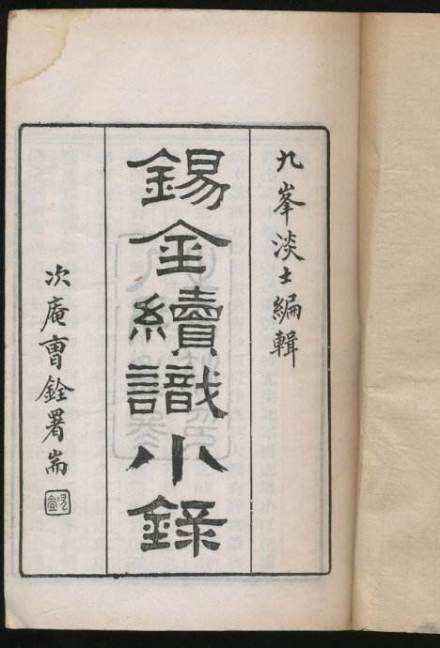 九峯淡士編輯
錫金續識小錄
次庵曺銓署耑